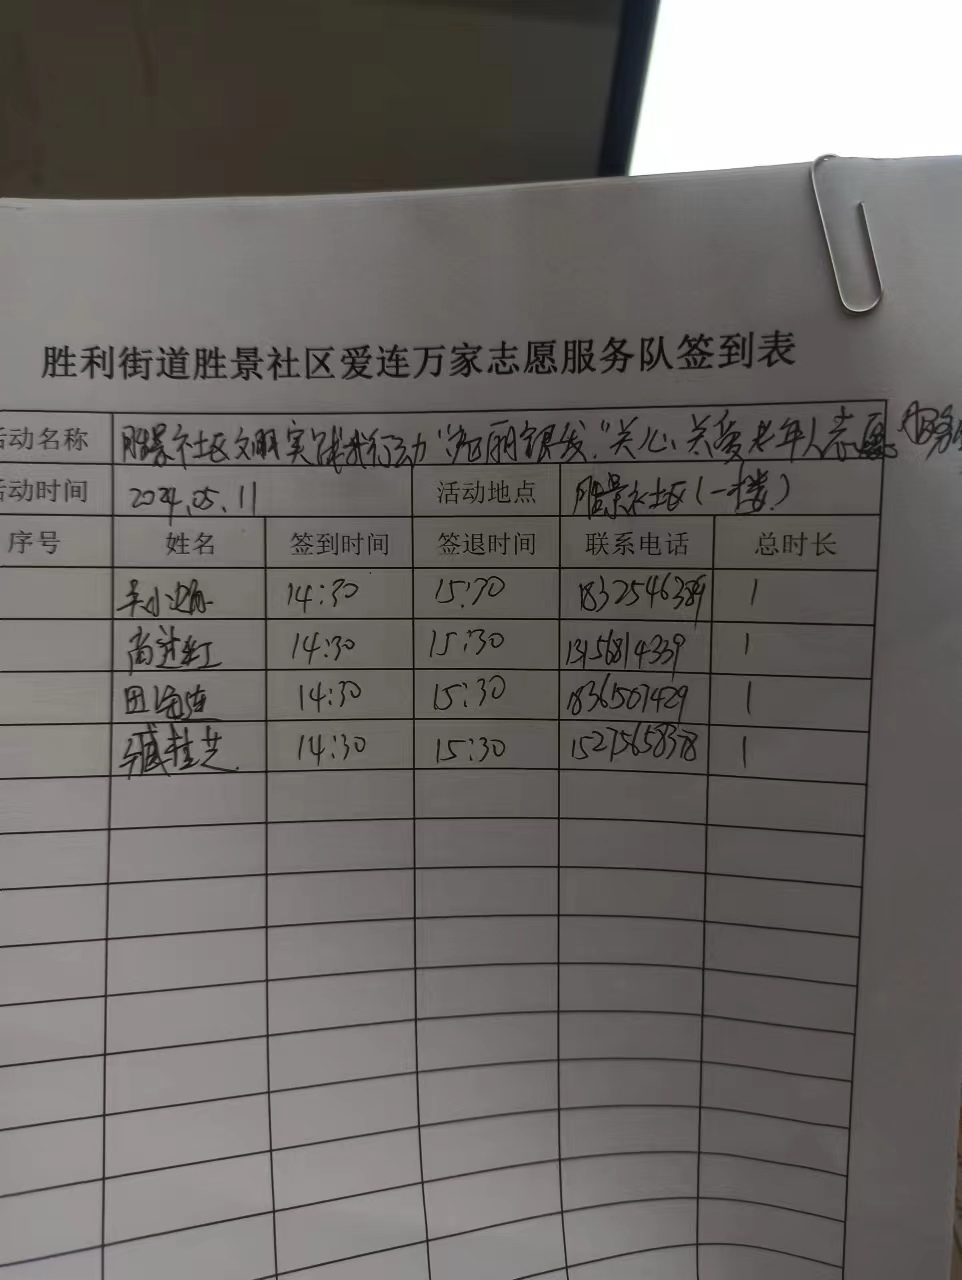 胜利街道胜景社区爱连万家志愿服务队签到表
活动名称 胜景社区文明实践我行动“绚丽银发”关心、关爱老年人志愿服务
活动时间 2024.05.11 活动地点 胜景社区(一楼)
序号 姓名 签到时间 签退时间 联系电话 总时长
吴小 14:30 15:30 1832546389 1
尚进红 14:30 15:30 13156814339 1
田海连 14:30 15:30 18361507429 1
臧桂芝 14:30 15:30 15275658378 1